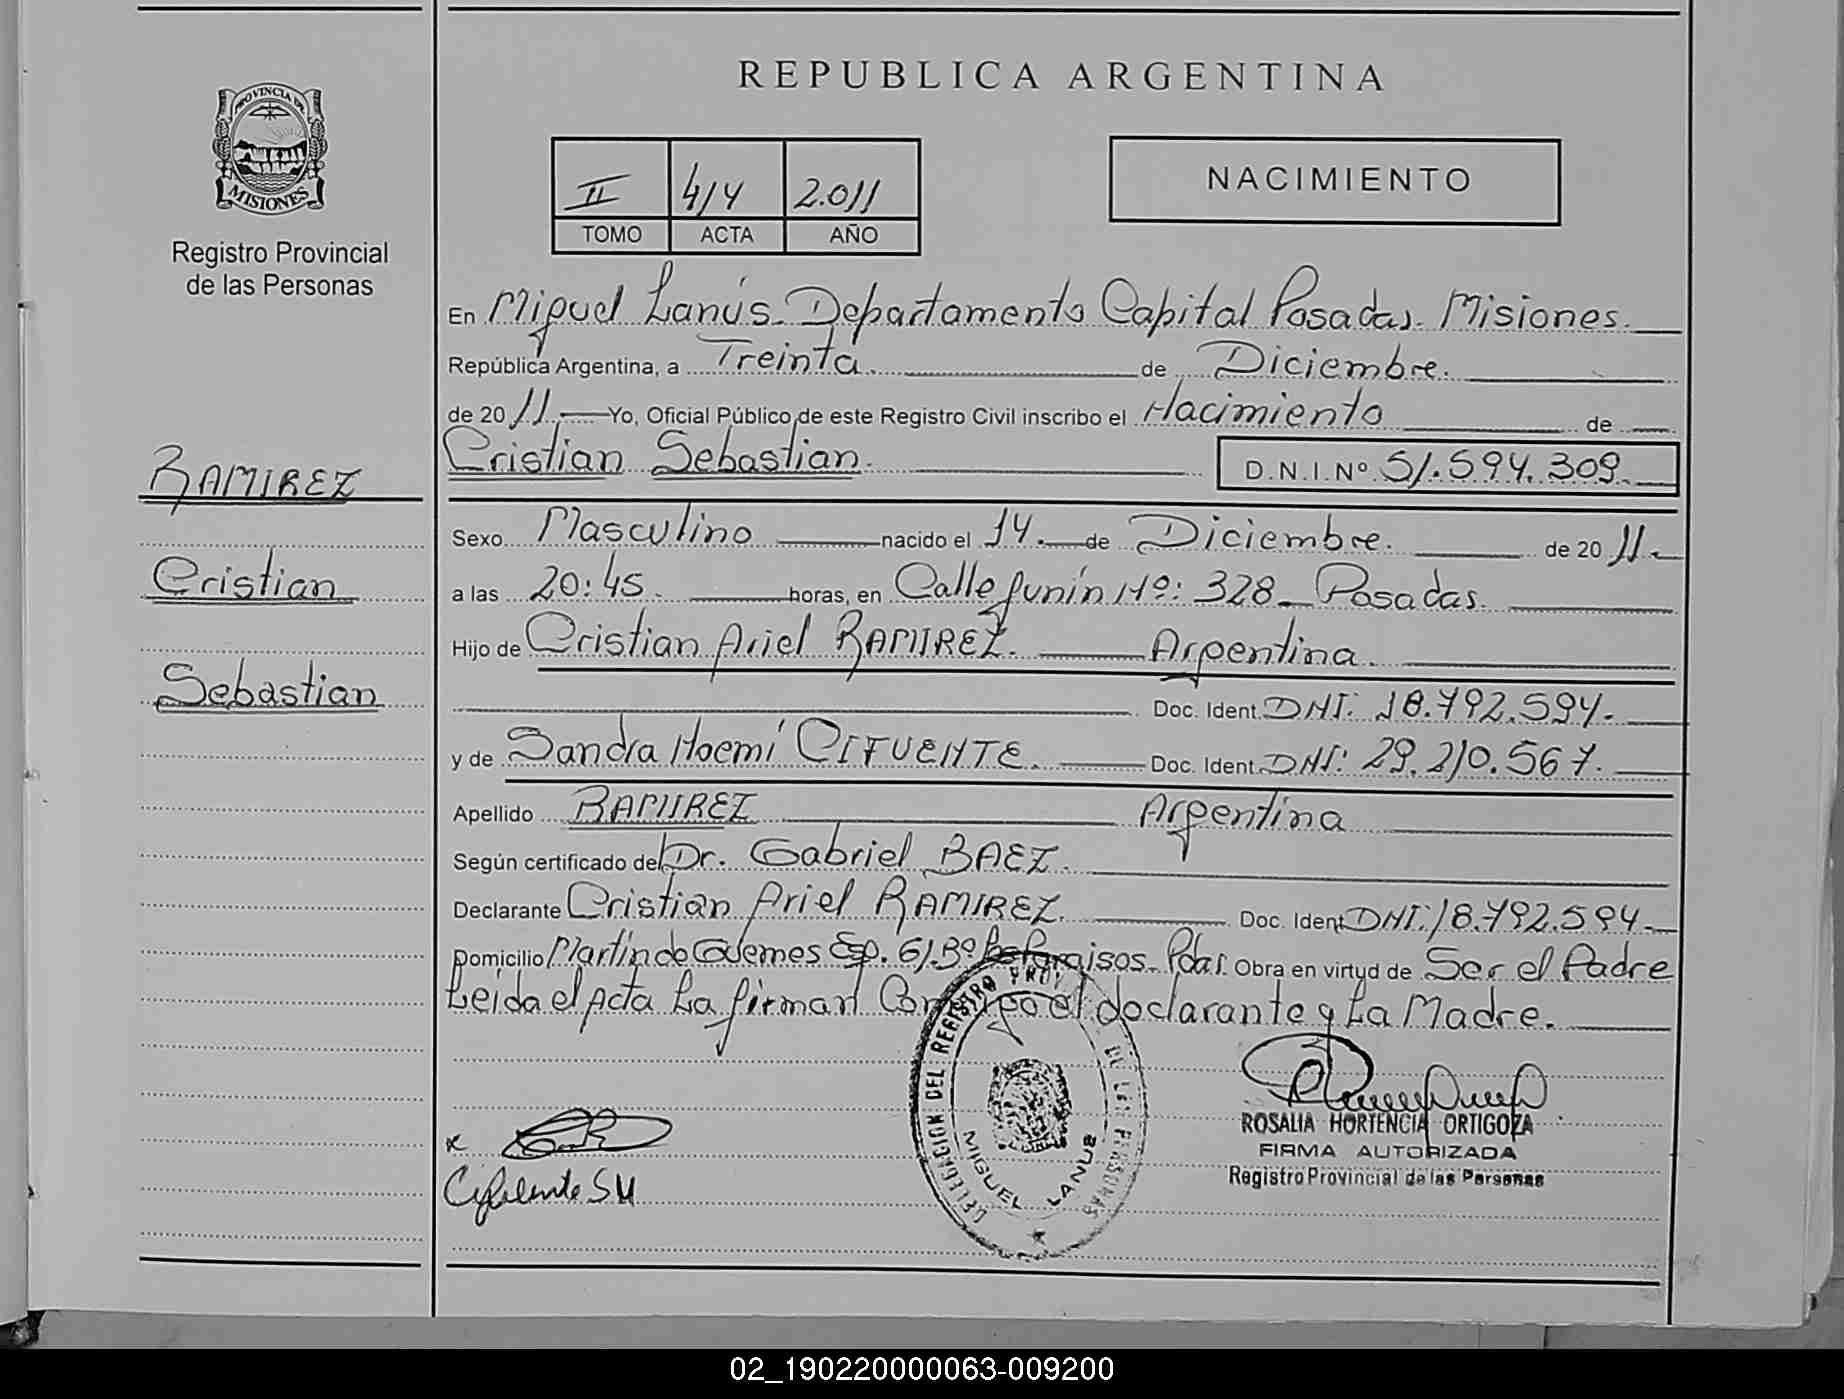 REPUBLICA ARGENTINA
PROVINCIA DE
MISIONES
Registro Provincial
de las Personas
II 414 2.011
TOMO ACTA AÑO
NACIMIENTO
En Miguel Lanús. Departamento Capital Posadas. Misiones.
República Argentina, a Treinta. de Diciembre.
de 20 11. Yo, Oficial Público de este Registro Civil inscribo el Nacimiento de
Cristian Sebastian. D.N.I.Nº 51.594.309.
RAMIREZ
Cristian
Sebastian
Sexo Masculino nacido el 14. de Diciembre. de 20 11.
a las 20:45. horas, en Calle Junín Nº: 328 Posadas.
Hijo de Cristian Ariel RAMIREZ. Argentina.
Doc. Ident. DNI: 18.792.594.
y de Sandra Noemí CIFUENTE. Doc. Ident. DNI: 29.210.567.
Apellido RAMIREZ Argentina
Según certificado del Dr. Gabriel BAEZ.
Declarante Cristian Ariel RAMIREZ. Doc. Ident DNI: 18.792.594.
Domicilio Martin de Guemes Esp. 6/Bº Paraisos. Pdas. Obra en virtud de Ser el Padre
Leida el Acta La firman Conmigo el declarante y La Madre.
DELEGACION DEL REGISTRO PROV. DE LAS PERSONAS
MIGUEL LANUS
ROSALIA HORTENCIA ORTIGOZA
FIRMA AUTORIZADA
Registro Provincial de las Personas
x
Cifuente SN
02_190220000063-009200